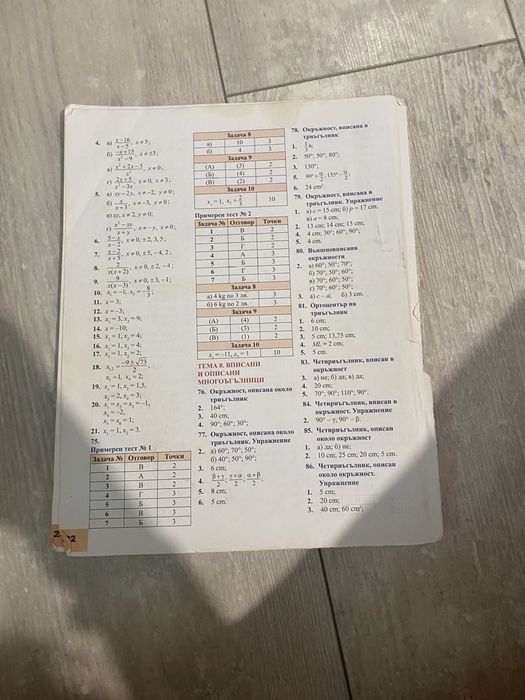 4. а) x−16/x−5, x≠5;
б) −x+15/x²−9, x≠±3;
в) x²+2x−3/x², x≠0;
г) 2x+5/x²−3x, x≠0, x≠3;
5. а) xy−2y, x≠−2, y≠0;
б) x/x+3, x≠−3, y≠0;
в) xy, x≠2, y≠0;
г) x²−xy/x+y, x≠−y, x≠0;
6. 5−x/x−2, x≠0, ±2, 3, 5;
7. x−2/x+5, x≠0, ±5, −4, 2;
8. 2/x(x+2), x≠0, ±2, −4;
9. 9/x(x−3), x≠0, ±3, −1;
10. x₁=−1; x₂=−8/3;
11. x=3;
12. x=−3;
13. x₁=3, x₂=9;
14. x=−10;
15. x₁=1, x₂=4;
16. x₁=1, x₂=4;
17. x₁=1, x₂=2;
18. x₁,₂=−9±√73/2
x₃=1, x₄=2;
19. x₁=1, x₂=1,5,
x₃=2, x₄=3;
20. x₁=x₂=x₃=−1,
x₄=−2,
x₅=x₆=1;
21. x₁=1, x₂=3.
75.
Примерен тест № 1
Задача № Отговор Точки
1 В 2
2 А 2
3 В 2
4 Г 3
5 Б 3
6 В 3
7 Б 3
Задача 8
а) 10 3
б) 4 3
Задача 9
(А) (3) 2
(Б) (4) 2
(В) (2) 2
Задача 10
x₁=1, x₂=2/3 10
Примерен тест № 2
Задача № Отговор Точки
1 В 2
2 Б 2
3 Г 2
4 А 3
5 Б 3
6 Г 3
7 Б 3
Задача 8
а) 4 kg по 3 лв. 3
б) 6 kg по 2 лв. 3
Задача 9
(А) (4) 2
(Б) (3) 2
(В) (1) 2
Задача 10
x₁=−11, x₂=1 10
ТЕМА 8. ВПИСАНИ
И ОПИСАНИ
МНОГОЪГЪЛНИЦИ
76. Окръжност, описана около
триъгълник
2. 164°;
3. 40 cm;
4. 90°; 60°; 30°;
77. Окръжност, описана около
триъгълник. Упражнение
2. а) 60°; 70°; 50°;
б) 40°; 50°; 90°;
3. 6 cm;
4. β+γ/2; γ+α/2; α+β/2;
5. 8 cm;
6. 5 cm.
78. Окръжност, вписана в
триъгълник
1. 1/3 h;
2. 50°; 50°; 80°;
3. 130°;
5. 90°+α/2; 135°−α/2;
6. 24 cm²
79. Окръжност, вписана в
триъгълник. Упражнение
1. а) c = 15 cm; б) p = 17 cm;
в) a = 8 cm;
2. 13 cm; 14 cm; 15 cm;
4. 4 cm; 30°; 60°; 90°;
5. 4 cm.
80. Външновписани
окръжности
2. а) 60°; 50°; 70°;
б) 70°; 50°; 60°;
в) 70°; 60°; 50°;
г) 70°; 60°; 50°;
3. а) c − a; б) 3 cm.
81. Ортоцентър на
триъгълник
1. 6 cm;
2. 10 cm;
3. 5 cm; 13,75 cm;
4. ML = 2 cm;
5. 5 cm.
83. Четириъгълник, вписан в
окръжност
3. а) не; б) да; в) да;
4. 20 cm;
5. 70°; 90°; 110°; 90°.
84. Четириъгълник, вписан в
окръжност. Упражнение
2. 90° − γ; 90° − β.
85. Четириъгълник, описан
около окръжност
1. а) да; б) не;
2. 10 cm; 25 cm; 20 cm; 5 cm.
86. Четириъгълник, описан
около окръжност.
Упражнение
1. 5 cm;
2. 20 cm;
3. 40 cm; 60 cm²;